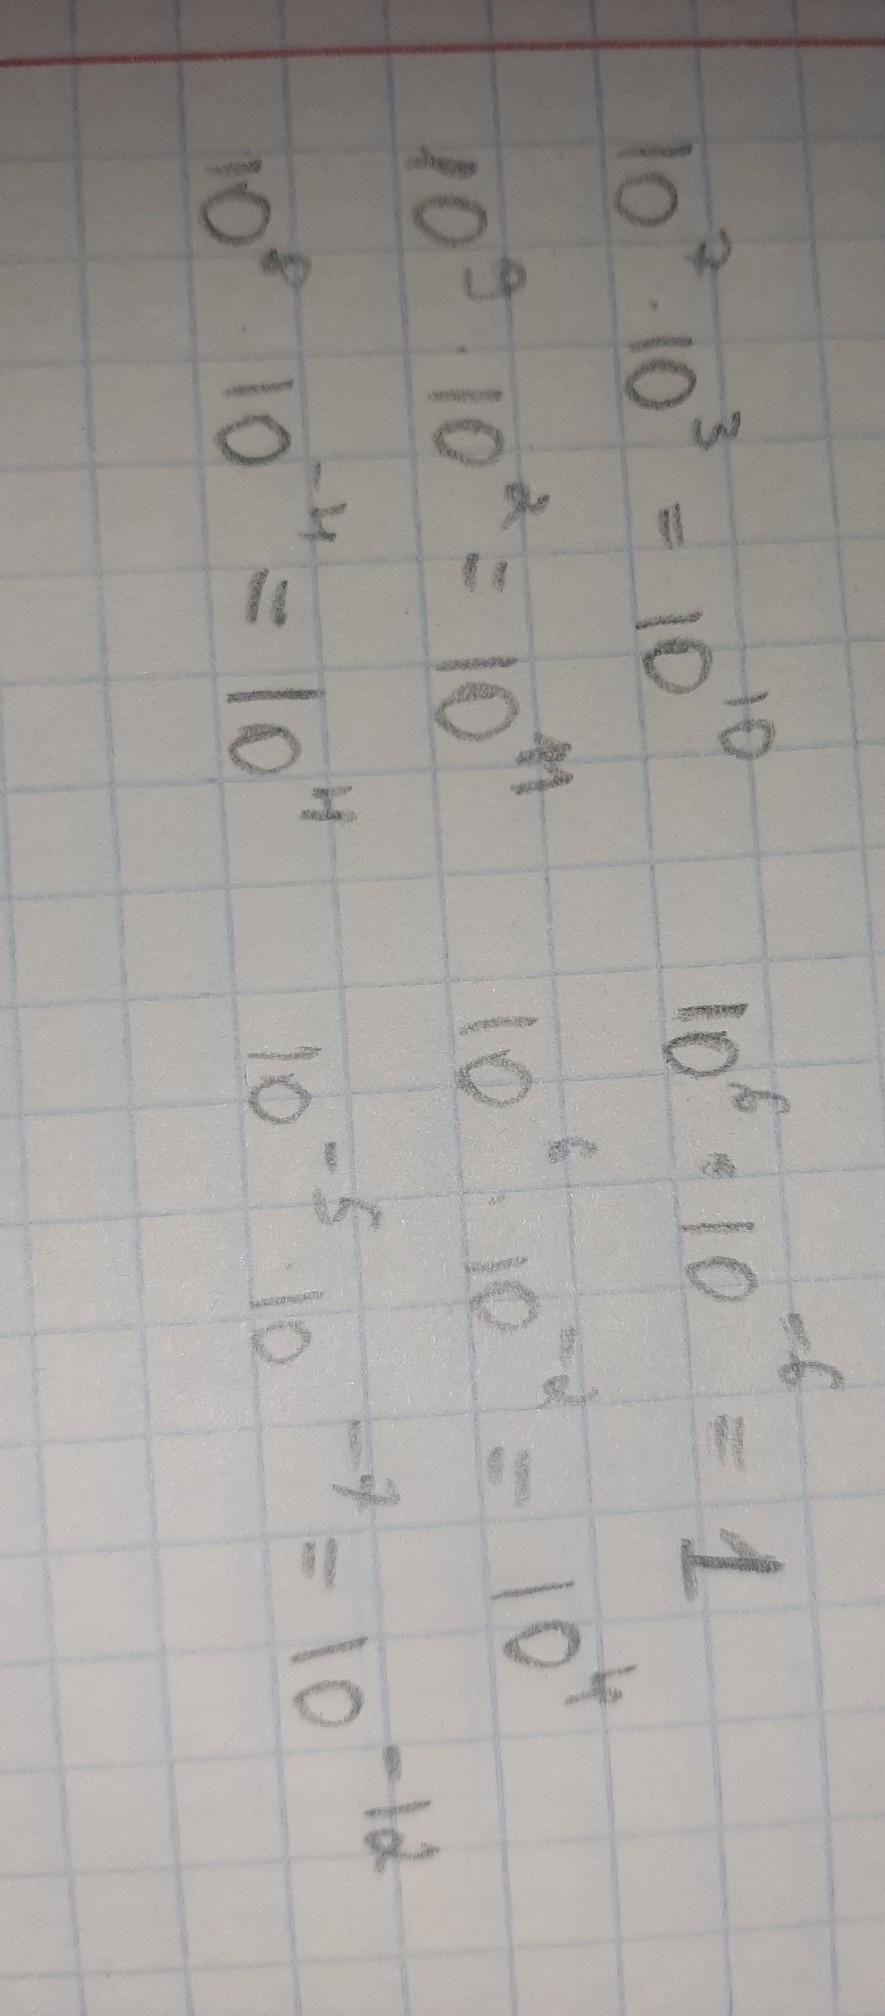 10⁷ · 10³ = 10¹⁰ 10⁶ · 10⁻⁶ = 1
10⁹ · 10² = 10¹¹ 10⁶ · 10⁻² = 10⁴
10⁸ · 10⁻⁴ = 10⁴ 10⁻⁵ · 10⁻⁷ = 10⁻¹²